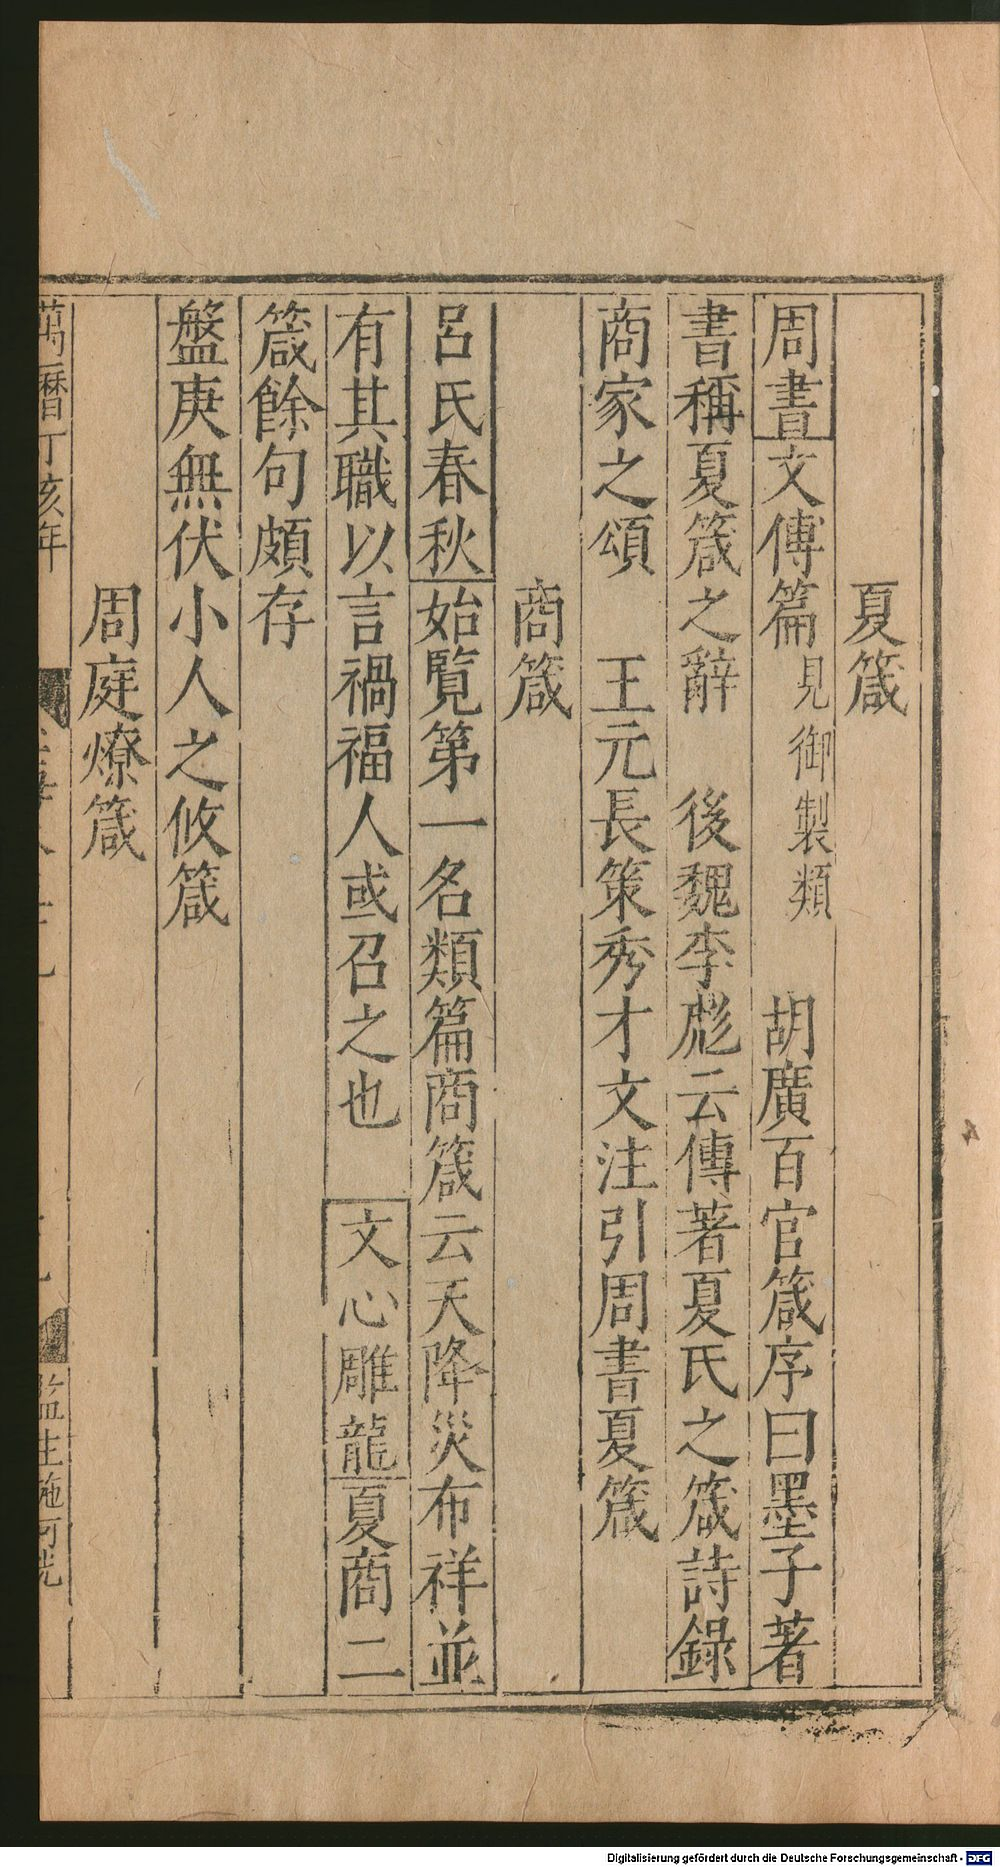 夏箴
周書文傳篇見御製類 胡廣百官箴序曰墨子著
書稱夏箴之辭 後魏李彪云傳著夏氏之箴詩錄
商家之頌 王元長策秀才文注引周書夏箴
商箴
呂氏春秋始覽第一名類篇商箴云天降災布祥並
有其職以言禍福人或召之也 文心雕龍夏商二
箴餘句頗存
盤庚無伏小人之攸箴
周庭燎箴
萬曆丁亥年
監生施可
Digitalisierung gefördert durch die Deutsche Forschungsgemeinschaft - DFG